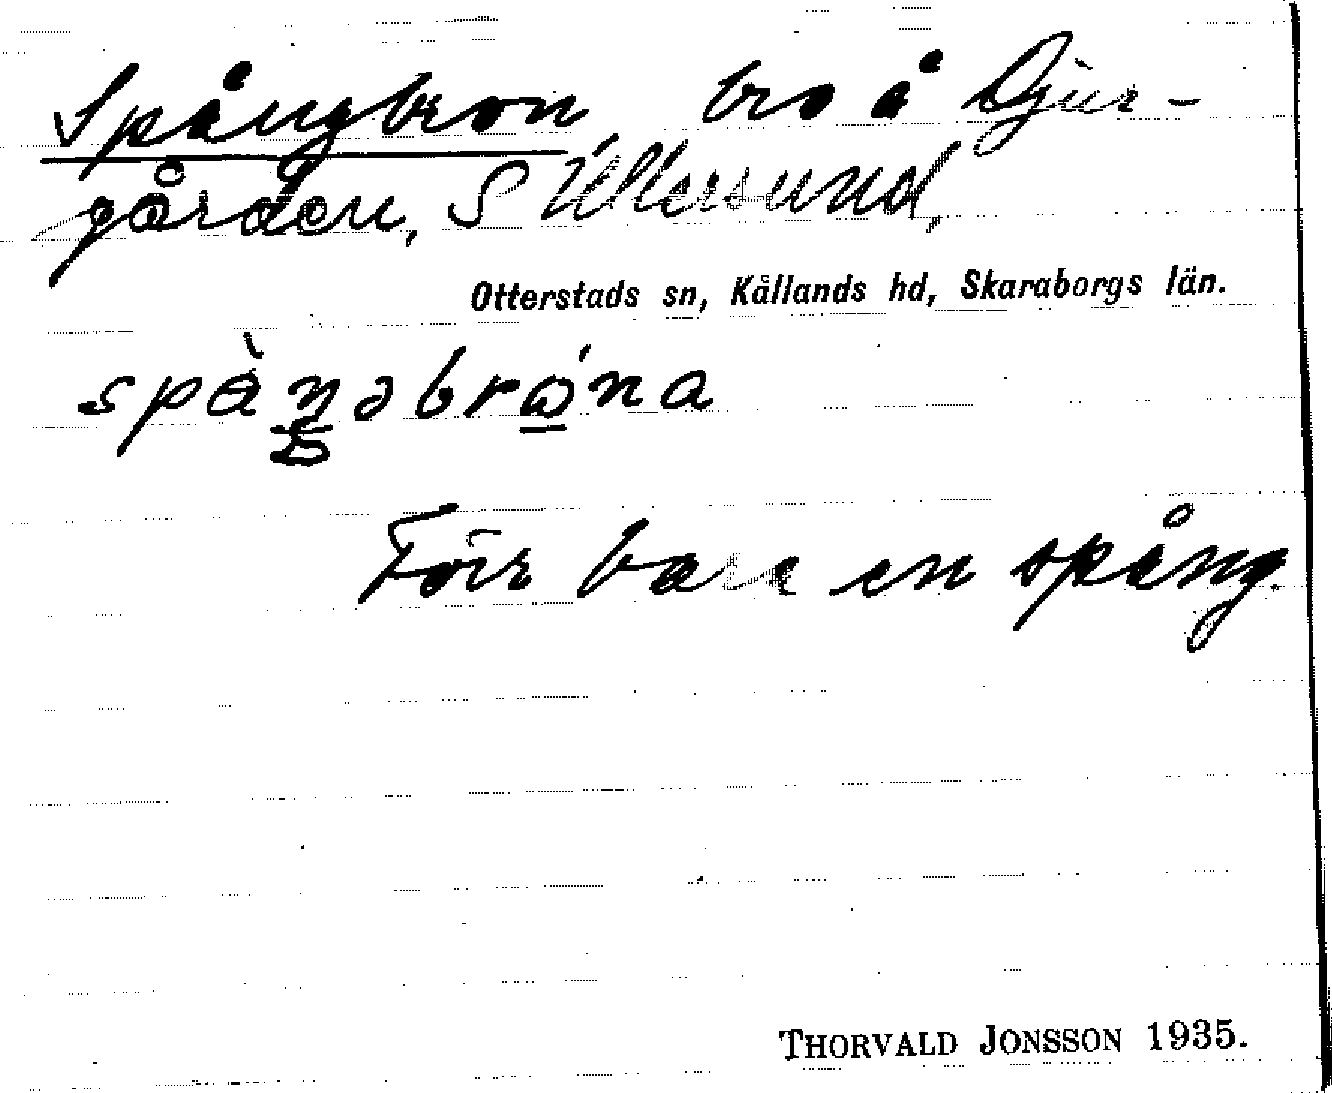 Spångbron, bro å Djur-
gården, S Ullersund,
Otterstads sn, Kållands hd, Skaraborgs län.
spåŋəbrώ̱na
Förr bara en spång.
THORVALD JONSSON 1935.